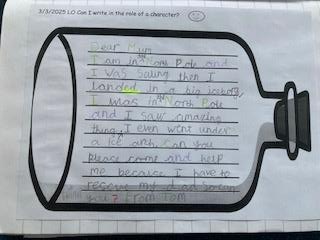 3/3/2025 LO Can I write in the role of a character?
Dear Mum
I am in the North Pole and
I was saling then I
landed in a big iceberg,
I was in the North Pole
and I saw amazing
things. I even went under
a ice arch. Can you
please come and help
me because I have to
rescue my dad
you? From Tom